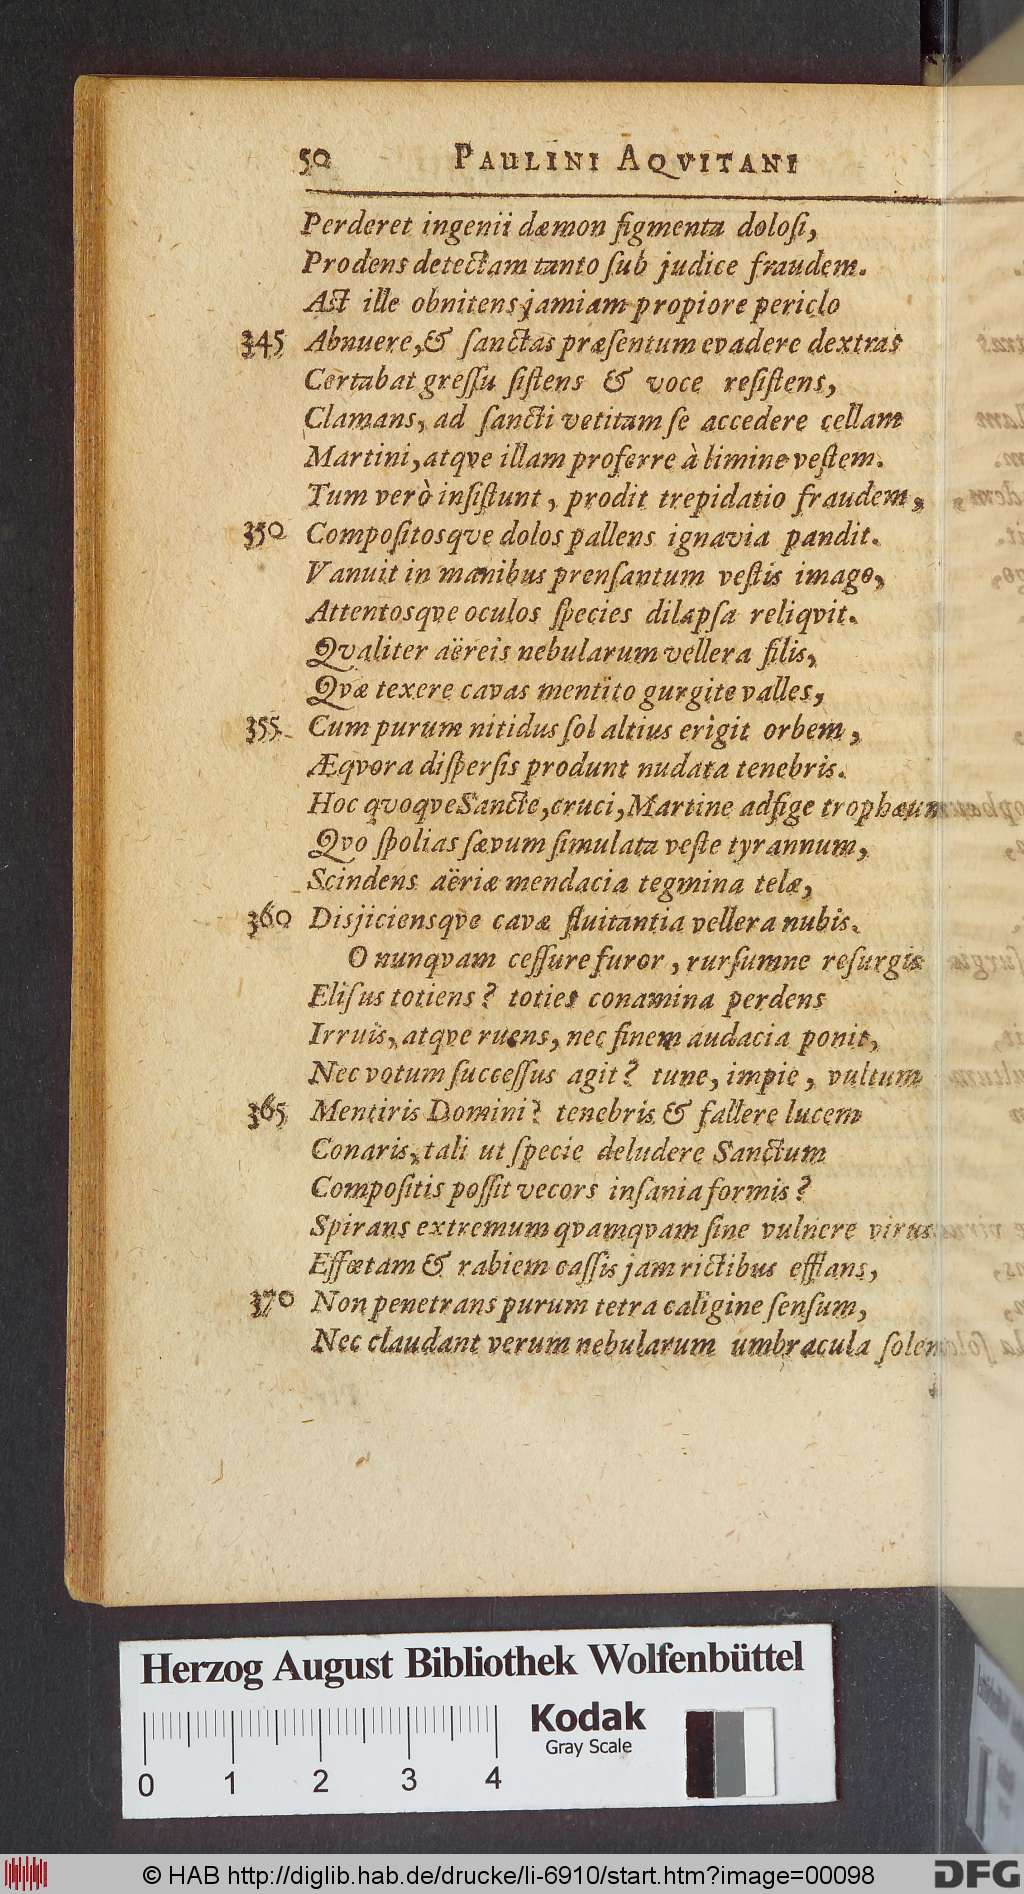 50 PAULINI AQVITANI
Perderet ingenii dæmon figmenta dolosi,
Prodens detectam tanto sub judice fraudem.
Ast ille obnitens jamiam propiore periclo
345 Abnuere, & sanctas præsentum evadere dextras
Certabat gressu sistens & voce resistens,
Clamans, ad sancti vetitam se accedere cellam
Martini, atqve illam proferre à limine vestem.
Tum verò insistunt, prodit trepidatio fraudem,
350 Compositosqve dolos pallens ignavia pandit.
Vanuit in manibus prensantum vestis imago,
Attentosqve oculos species dilapsa reliqvit.
Qvaliter aëreis nebularum vellera filis,
Qvæ texere cavas mentito gurgite valles,
355 Cum purum nitidus sol altius erigit orbem,
Æqvora dispersis produnt nudata tenebris.
Hoc qvoqve Sancte, cruci, Martine adfige trophæum
Qvo spolias sævum simulata veste tyrannum,
Scindens aëriæ mendacia tegmina telæ,
360 Disjiciensqve cavæ fluitantia vellera nubis.
O nunqvam cessure furor, rursumne resurgis
Elisus totiens? toties conamina perdens
Irruis, atqve ruens, nec finem audacia ponit,
Nec votum successus agit? tune, impie, vultum
365 Mentiris Domini? tenebris & fallere lucem
Conaris, tali ut specie deludere Sanctum
Compositis possit vecors insania formis?
Spirans extremum qvamqvam sine vulnere virus
Effœtam & rabiem cassis jam rictibus efflans,
370 Non penetrans purum tetra caligine sensum,
Nec claudant verum nebularum umbracula solem
Herzog August Bibliothek Wolfenbüttel
Kodak
Gray Scale
0 1 2 3 4
© HAB http://diglib.hab.de/drucke/li-6910/start.htm?image=00098
DFG